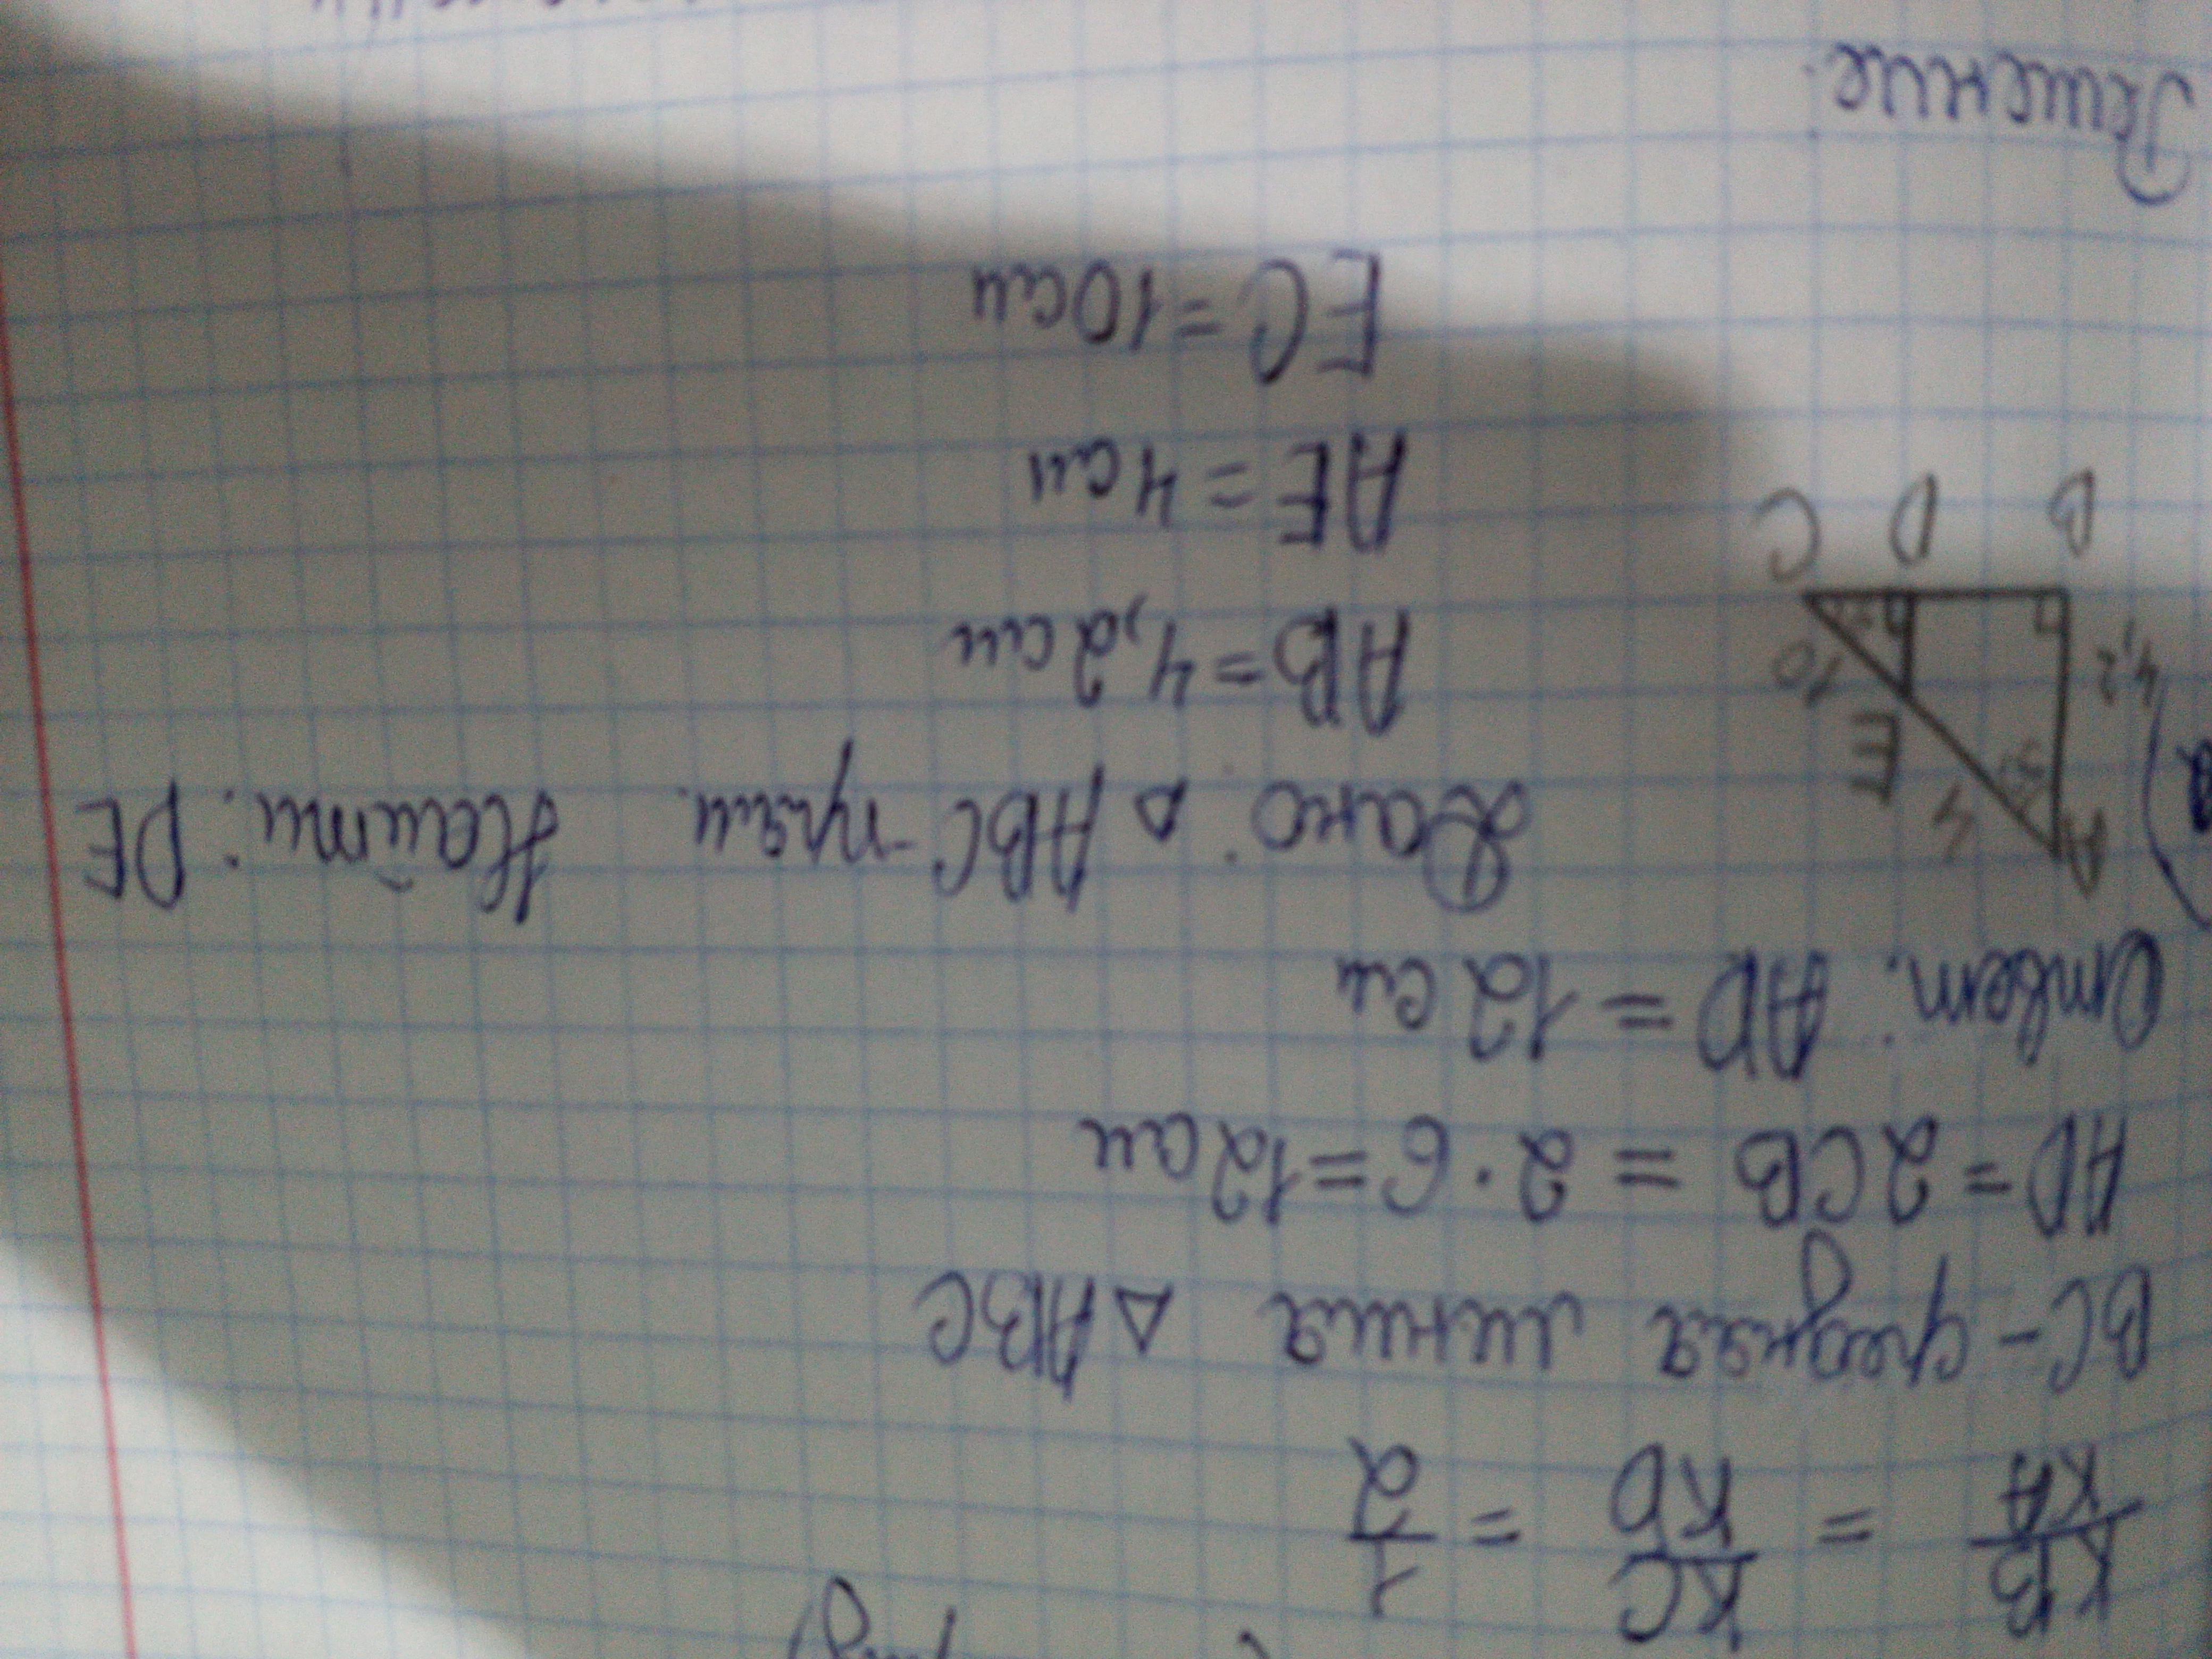 KB/KA = KC/KD = 1/2
BC - средняя линия △ABC
AD = 2CB = 2·6 = 12см
Ответ: AD = 12см
Дано: △ABC-прям. Найти: DE
AB = 4,2см
AE = 4см
EC = 10см
A
4
E
4,2
10
B D C
Решение: